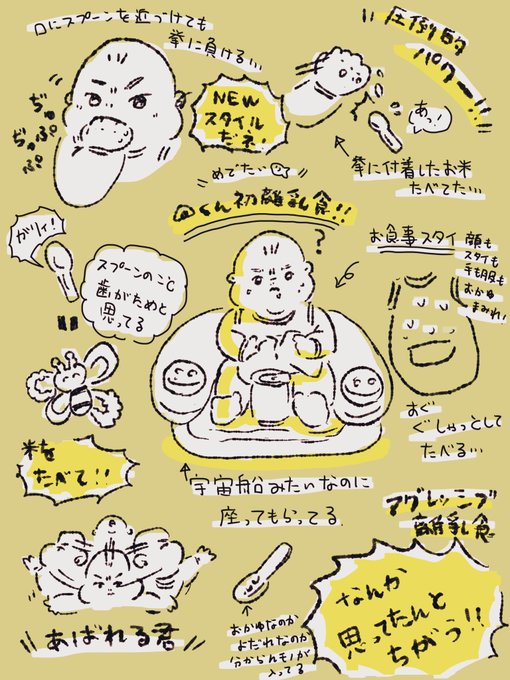 口にスプーンを近づけても
拳に負ける…
圧倒的
パワー!!
ぢゅ
ぢゅぷ
ぷ
NEW
スタイル
だネ
あっ!
拳に付着したお米
たべてた…
めでたい
初離乳食!!
ガリィ!
スプーンのこと
歯がためと
思ってる
?
お食事スタイ
顔も
スタイも
手も服も
おかゆ
まみれ!
おぐ
ぐしゃっとして
たべる…
米を
たべて!!
宇宙船みたいなのに
座ってもらってる
アグレッシブ
離乳食
あばれる君
おかゆなのか
よだれなのか
分からんモノが
入ってる
なんか
思ってたんと
ちがう!!